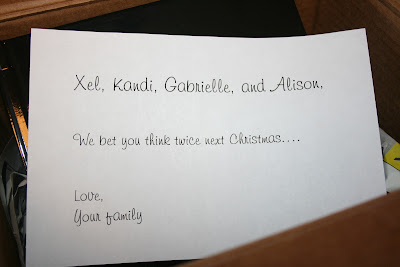 Xel, Kandi, Gabrielle, and Alison,
We bet you think twice next Christmas....
Love,
Your family